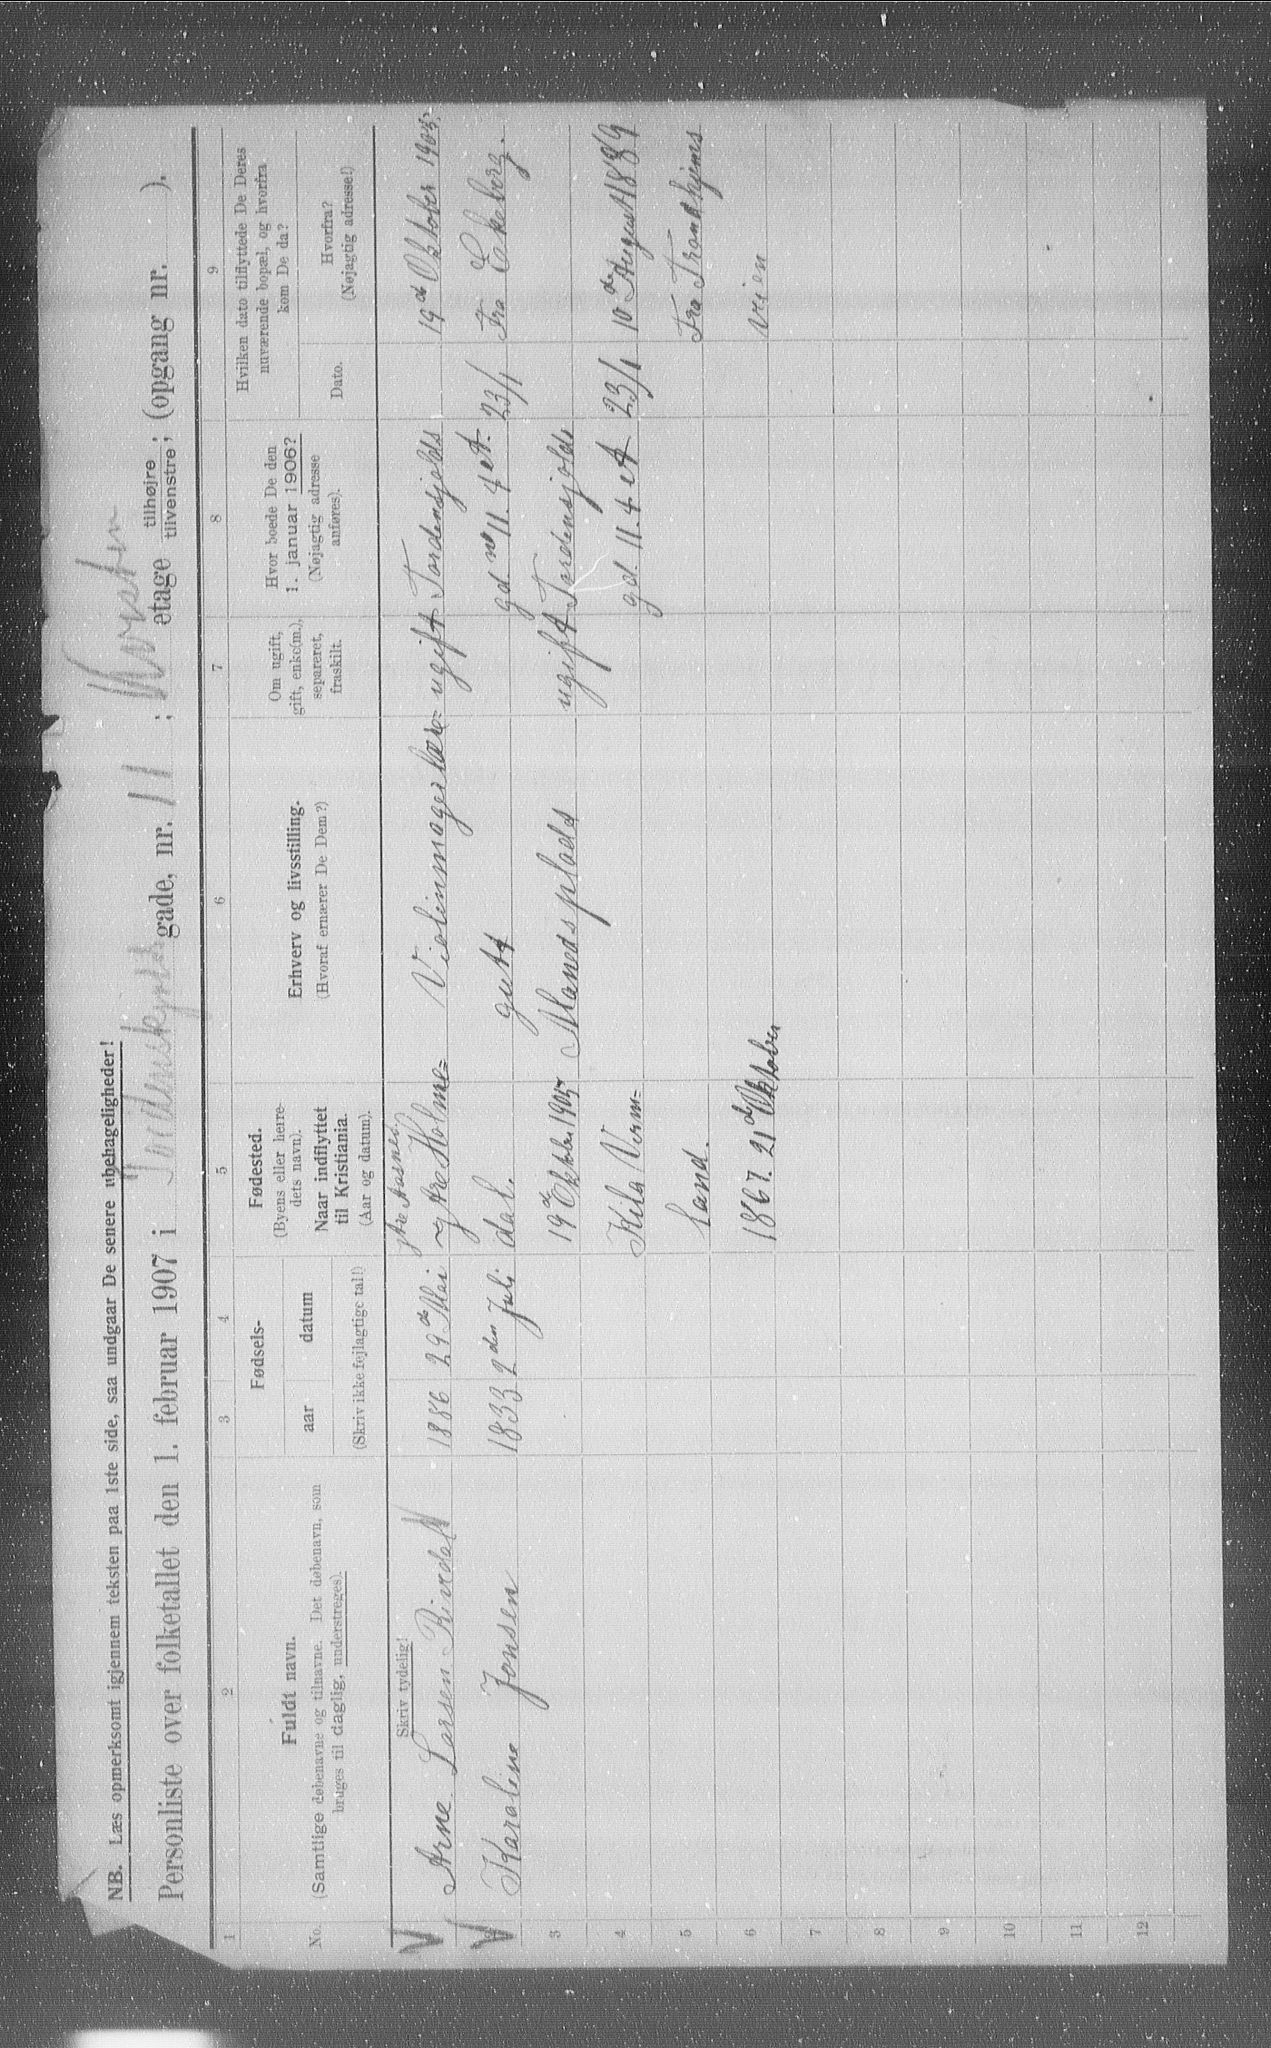 NB. Læs opmerksomt igjennem teksten paa 1ste side, saa undgaar De senere ubehageligheder!
Personliste over folketallet den 1. februar 1907 i Tordenskjolds gade, nr. 11; Kvisten etage tilhøjre ; (opgang nr. ).
tilvenstre;
1 2 3 4 5 6 7 8 9
No.
Fuldt navn.
(Samtlige døbenavne og tilnavne. Det døbenavn, som
bruges til daglig, understreges).
Fødsels-
aar datum
(Skriv ikke fejlagtige tal!)
Fødested.
(Byens eller herre-
dets navn).
Naar indflyttet
til Kristiania.
(Aar og datum).
Erhverv og livsstilling.
(Hvoraf ernærer De Dem?)
Om ugift,
gift, enke(m.),
separeret,
fraskilt.
Hvor boede De den
1. januar 1906?
(Nøjagtig adresse
anføres).
Hvilken dato tilflyttede De Deres
nuværende bopæl, og hvorfra
kom De da?
Dato.
Hvorfra?
(Nøjagtig adresse!)
Skriv tydelig!
Arne Larsen 1886 29de Mai Holme= Violinmagerlære= ugift Tordensjolds 19de Oktober 1905
Karoline Jonsen 1833 2den Juli dal. gutt gd. no 11. 4 et. 23/1 Fra Ekeberg.
3 19de Oktober 1905 plads ugift Tordensjolds
4 Verm= gd. 11. 4 et 23/1 10de August 1889
5 land. Fra Trondhjems
6 1867. 21de Oktober veien
7
8
9
10
11
12